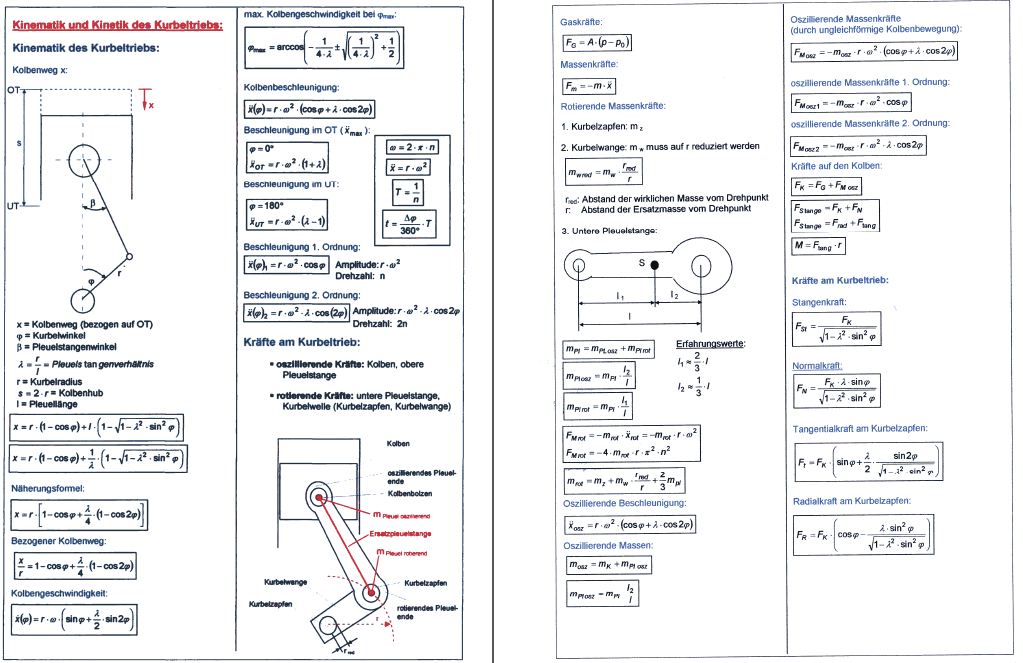 Kinematik und Kinetik des Kurbeltriebs:
Kinematik des Kurbeltriebs:
Kolbenweg x:
OT
x
s
UT
β
r
φ
x = Kolbenweg (bezogen auf OT)
φ = Kurbelwinkel
β = Pleuelstangenwinkel
λ = r/l = Pleuelstangenverhältnis
r = Kurbelradius
s = 2 · r = Kolbenhub
l = Pleuellänge
x = r · (1 − cos φ) + l · (1 − √(1 − λ² · sin² φ))
x = r · (1 − cos φ) + 1/λ · (1 − √(1 − λ² · sin² φ))
Näherungsformel:
x = r · [1 − cos φ + λ/4 · (1 − cos 2φ)]
Bezogener Kolbenweg:
x/r = 1 − cos φ + λ/4 · (1 − cos 2φ)
Kolbengeschwindigkeit:
ẋ(φ) = r · ω · (sin φ + λ/2 · sin 2φ)
max. Kolbengeschwindigkeit bei φmax:
φmax = arccos(− 1/(4 · λ) ± √((1/(4 · λ))² + 1/2))
Kolbenbeschleunigung:
ẍ(φ) = r · ω² · (cos φ + λ · cos 2φ)
Beschleunigung im OT (ẍmax):
φ = 0°
ẍOT = r · ω² · (1 + λ)
Beschleunigung im UT:
φ = 180°
ẍUT = r · ω² · (λ − 1)
ω = 2 · π · n
ẍ = r · ω²
T = 1/n
t = Δφ/360° · T
Beschleunigung 1. Ordnung:
ẍ(φ)1 = r · ω² · cos φ Amplitude: r · ω²
Drehzahl: n
Beschleunigung 2. Ordnung:
ẍ(φ)2 = r · ω² · λ · cos(2φ) Amplitude: r · ω² · λ · cos 2φ
Drehzahl: 2n
Kräfte am Kurbeltrieb:
• oszillierende Kräfte: Kolben, obere
Pleuelstange
• rotierende Kräfte: untere Pleuelstange,
Kurbelwelle (Kurbelzapfen, Kurbelwange)
Kolben
oszillierendes Pleuel-
ende
Kolbenbolzen
m Pleuel oszillierend
Ersatzpleuelstange
m Pleuel rotierend
Kurbelwange
Kurbelzapfen
Kurbelzapfen
rotierendes Pleuel-
ende
r
r red
Gaskräfte:
FG = A · (p − p0)
Massenkräfte:
Fm = −m · ẍ
Rotierende Massenkräfte:
1. Kurbelzapfen: m z
2. Kurbelwange: m w muss auf r reduziert werden
mw red = mw · rred/r
rred: Abstand der wirklichen Masse vom Drehpunkt
r: Abstand der Ersatzmasse vom Drehpunkt
3. Untere Pleuelstange:
S
l 1
l 2
l
mPl = mPl osz + mPl rot
mPl osz = mPl · l2/l
mPl rot = mPl · l1/l
Erfahrungswerte:
l1 ≈ 2/3 · l
l2 ≈ 1/3 · l
FM rot = −mrot · ẍrot = −mrot · r · ω²
FM rot = −4 · mrot · r · π² · n²
mrot = mz + mw · rred/r + 2/3 mpl
Oszillierende Beschleunigung:
ẍosz = r · ω² · (cos φ + λ · cos 2φ)
Oszillierende Massen:
mosz = mK + mPl osz
mPl osz = mPl · l2/l
Oszillierende Massenkräfte
(durch ungleichförmige Kolbenbewegung):
FM osz = −mosz · r · ω² · (cos φ + λ · cos 2φ)
oszillierende Massenkräfte 1. Ordnung:
FM osz 1 = −mosz · r · ω² · cos φ
oszillierende Massenkräfte 2. Ordnung:
FM osz 2 = −mosz · r · ω² · λ · cos 2φ
Kräfte auf den Kolben:
FK = FG + FM osz
FStange = FK + FN
FStange = Frad + Ftang
M = Ftang · r
Kräfte am Kurbeltrieb:
Stangenkraft:
FSt = FK/√(1 − λ² · sin² φ)
Normalkraft:
FN = FK · λ · sin φ/√(1 − λ² · sin² φ)
Tangentialkraft am Kurbelzapfen:
Ft = FK · (sin φ + λ/2 · sin 2φ/√(1 − λ² · sin² φ))
Radialkraft am Kurbelzapfen:
FR = FK · (cos φ − λ · sin² φ/√(1 − λ² · sin² φ))